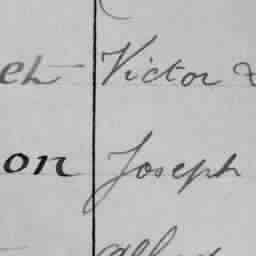 et Victor &
on Joseph